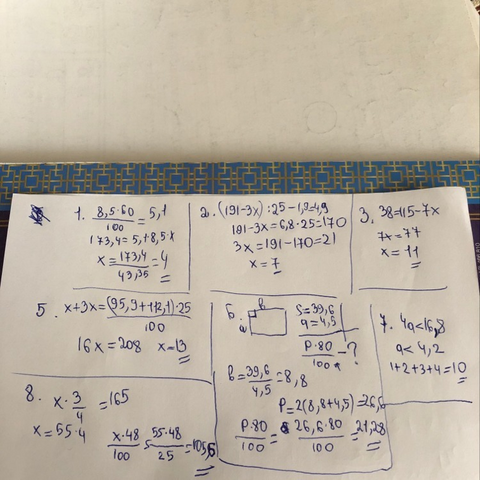 1. 8,5·60/100 = 5,1
173,4 = 5,1+8,5x
x = 173,4/43,35 = 4
2. (191-3x):25-1,9=4,9
191-3x=6,8·25=170
3x=191-170=21
x=7
3. 38=115-7x
7x=77
x=11
5. x+3x = (95,9+112,1)·25/100
16x=208 x=13
6. a b S=39,6
a=4,5
P·80/100 - ?
b = 39,6/4,5 = 8,8
P=2(8,8+4,5)=26,6
P·80/100 = 26,6·80/100 = 21,28
7. 4a<16,8
a<4,2
1+2+3+4=10
8. x·3/4 = 165
x=55·4 x·48/100 = 55·48/25 = 105,6